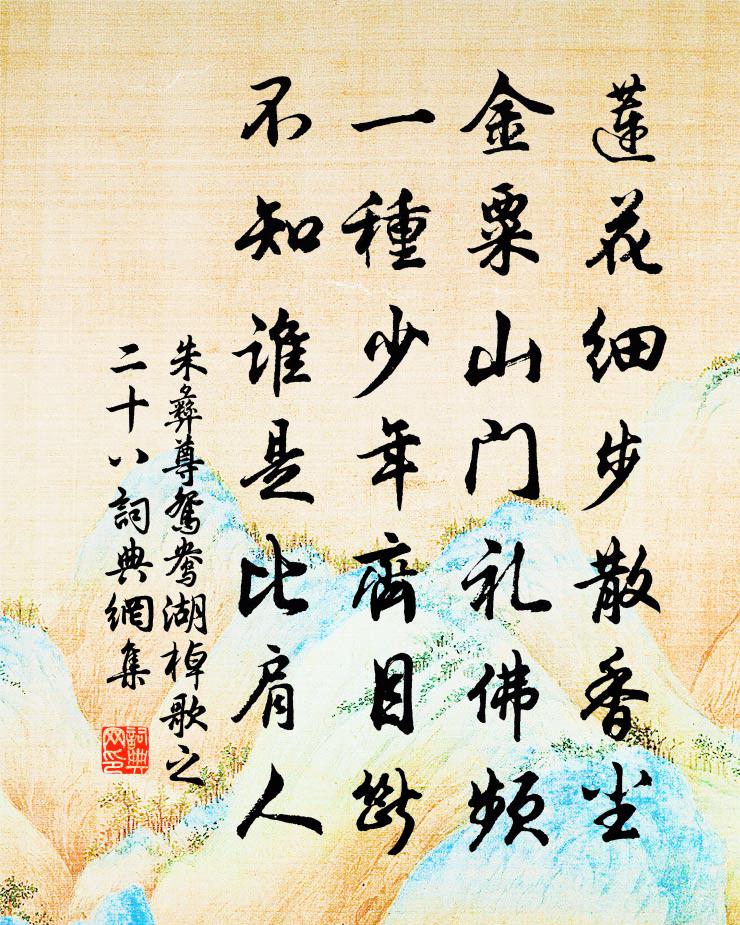 蓮花细步散香尘
金粟山门礼佛频
一種少年齊目斷
不知誰是比肩人
朱彝尊鸳鸯湖棹歌之
二十八詞典網集
詞典
网印